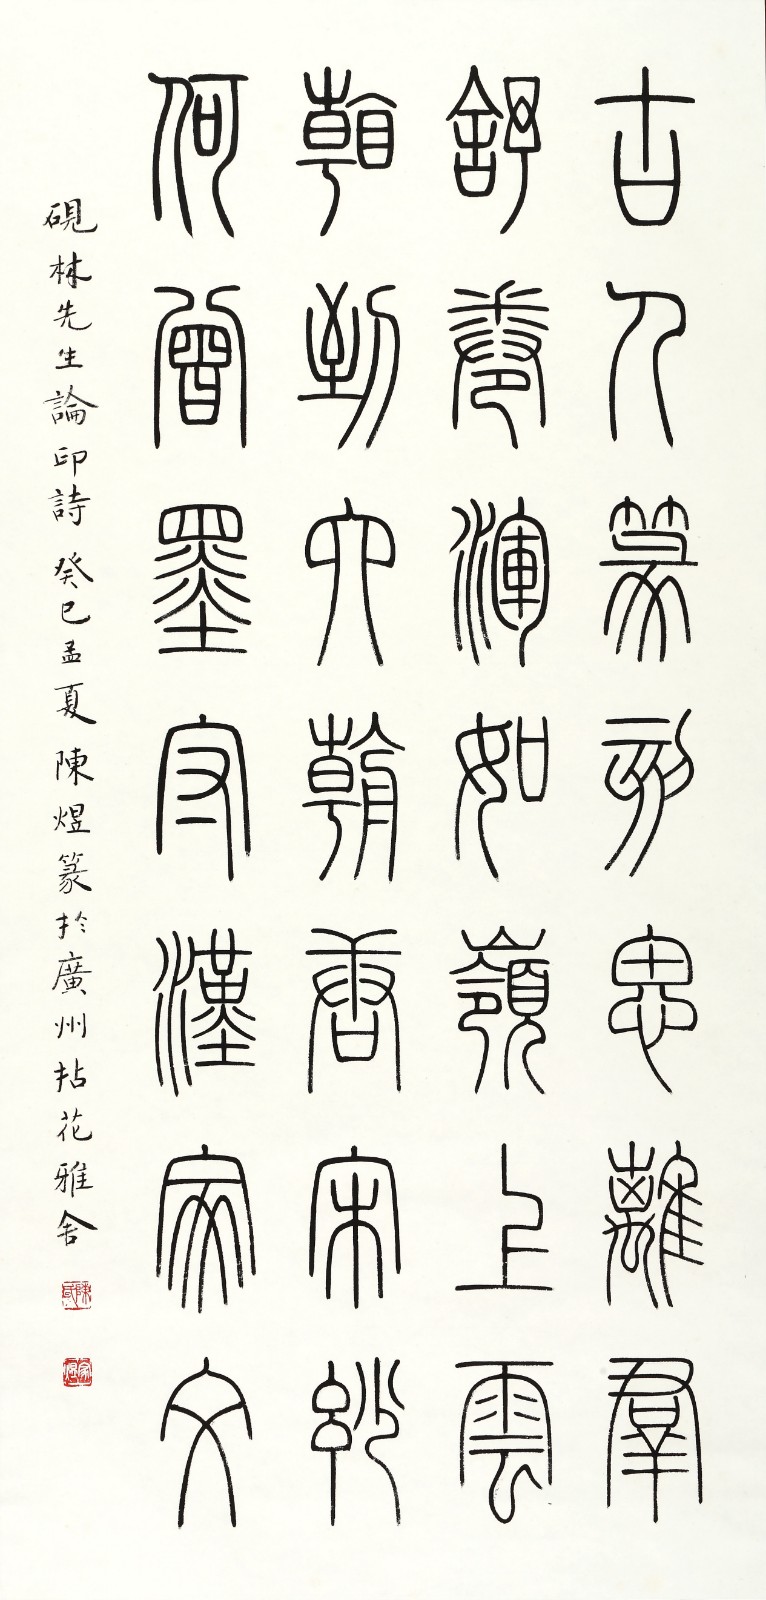 古人篆刻思離羣
舒卷渾如嶺上雲
看到六朝唐宋妙
何曾墨守漢家文
硯林先生論印詩 癸巳孟夏 陳煜篆於廣州拈花雅舍